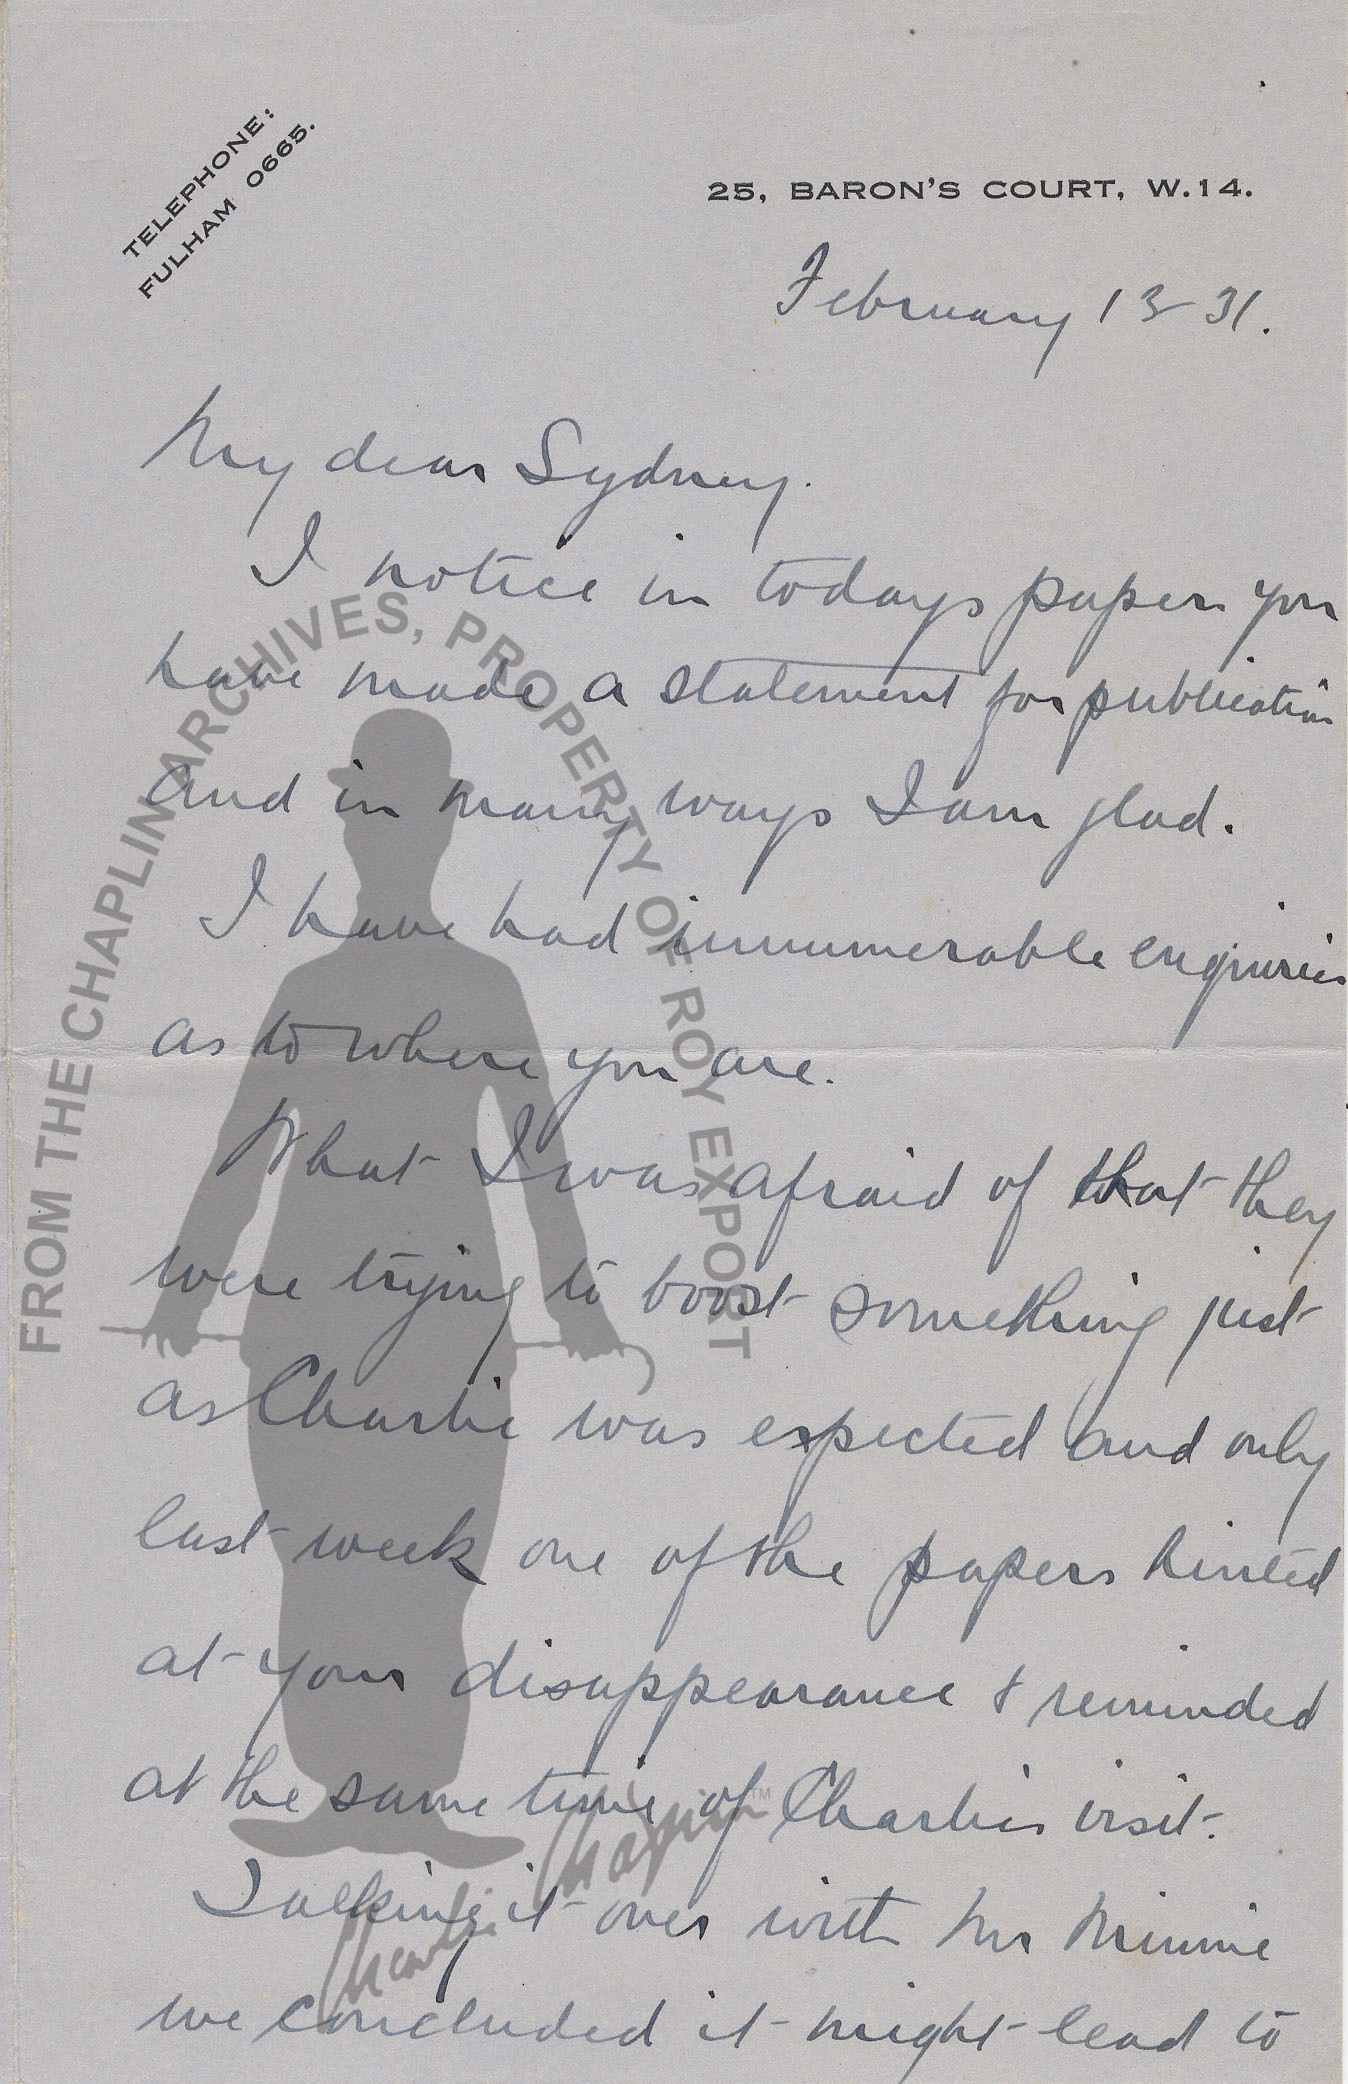 TELEPHONE:
FULHAM 0665.
25, BARON'S COURT, W.14.
February 13 - 31.
My dear Sydney.
I notice in todays paper you
have made a statement for publication
and in many ways I am glad.
I have had innumerable enquiries
as to where you are.
What I was afraid of that they
were trying to boost something just
as Charlie was expected and only
last week one of the papers hinted
at your disappearance & reminded
at the same time of Charlies visit.
Talking it over with Mr Minnie
we concluded it might lead to
FROM THE CHAPLIN ARCHIVES, PROPERTY OF ROY EXPORT
Charlie Chaplin™